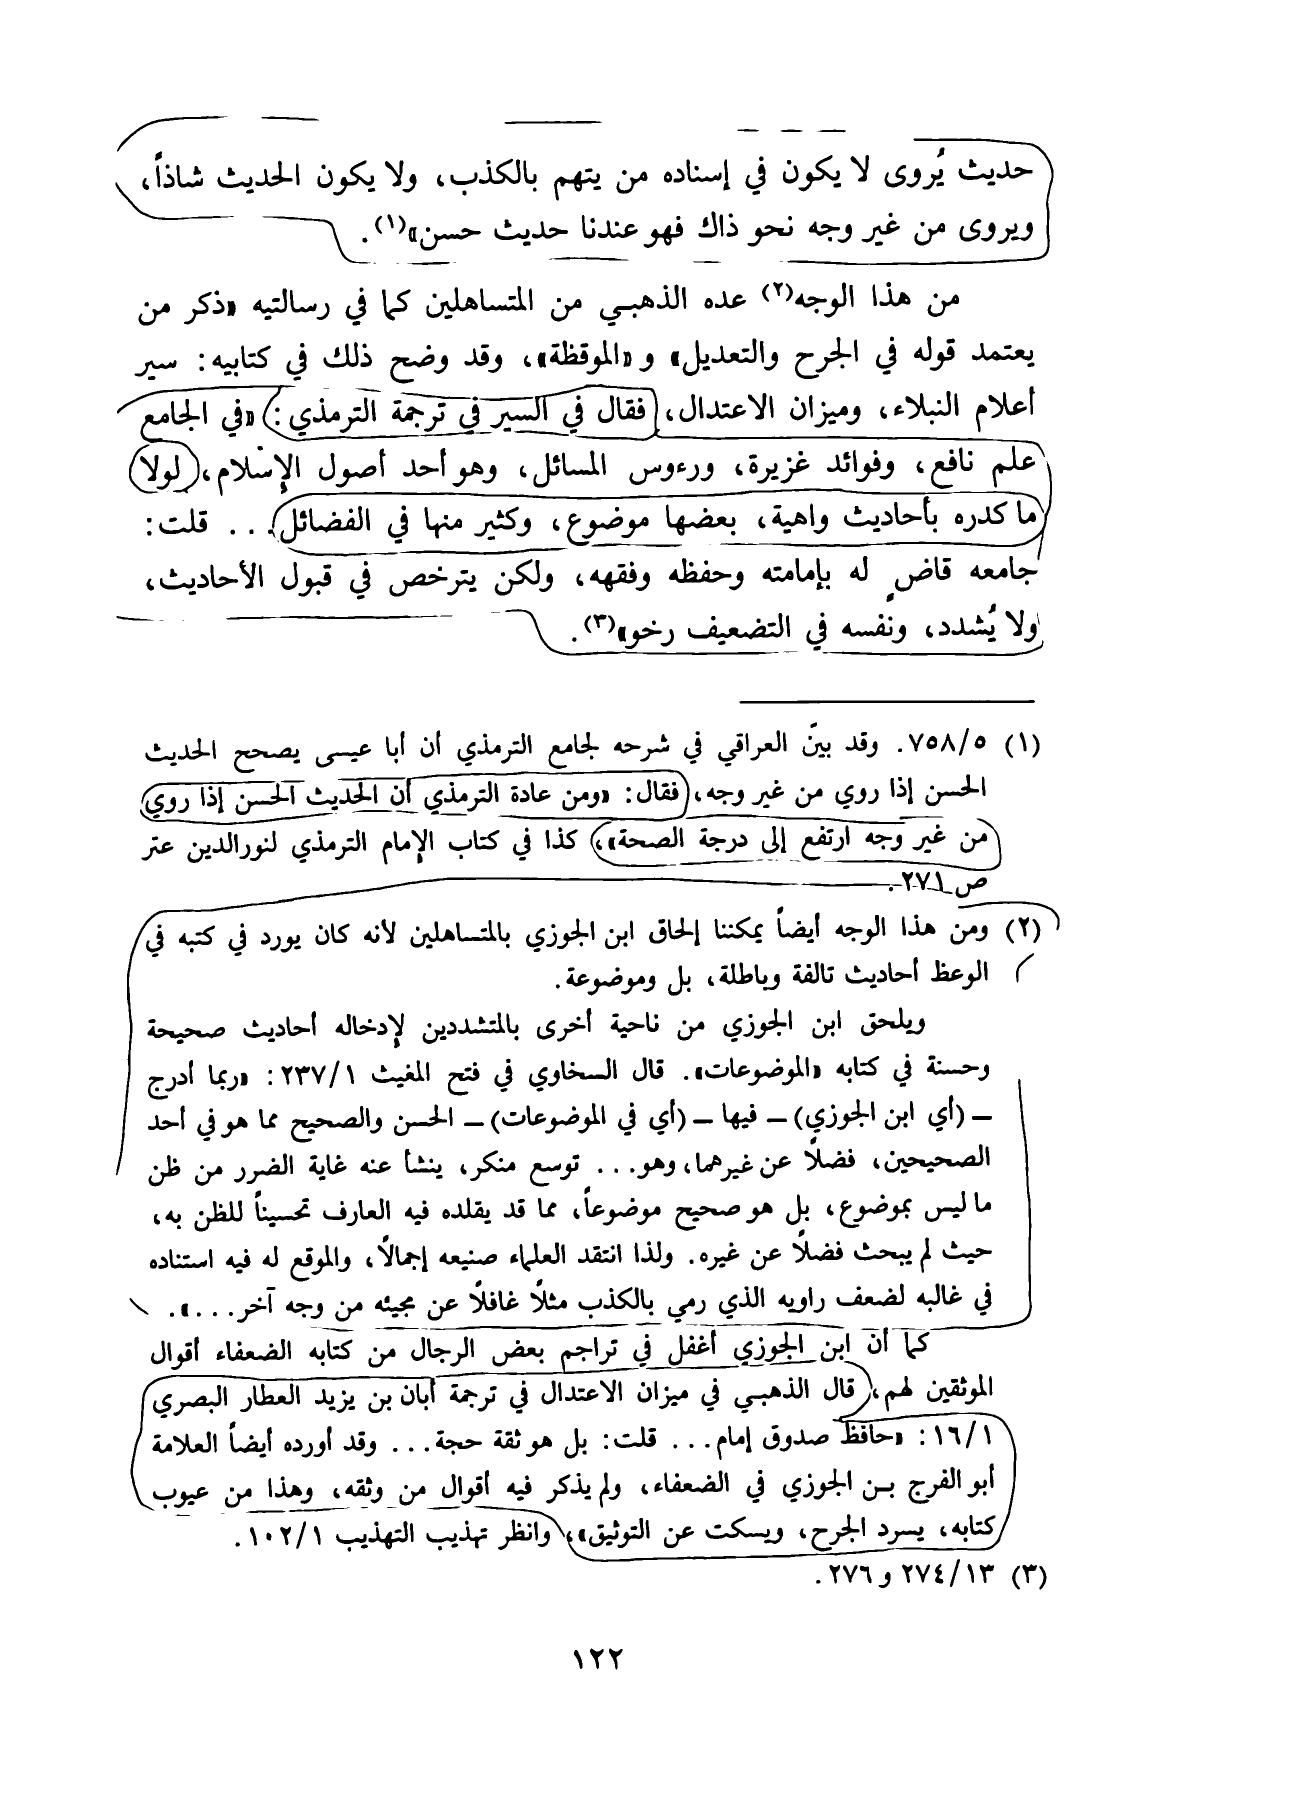 حديث يُروى لا يكون في إسناده من يتهم بالكذب، ولا يكون الحديث شاذاً،
ويروى من غير وجه نحو ذاك فهو عندنا حديث حسن»(١).
من هذا الوجه(٢) عده الذهبي من المتساهلين كما في رسالتيه «ذكر من
يعتمد قوله في الجرح والتعديل» و«الموقظة»، وقد وضح ذلك في كتابيه: سير
أعلام النبلاء، وميزان الاعتدال، فقال في السير في ترجمة الترمذي: «في الجامع
علم نافع، وفوائد غزيرة، ورءوس المسائل، وهو أحد أصول الإسلام، لولا
ما كدره بأحاديث واهية، بعضها موضوع، وكثير منها في الفضائل... قلت:
جامعه قاضٍ له بإمامته وحفظه وفقهه، ولكن يترخص في قبول الأحاديث،
ولا يُشدد، ونفسه في التضعيف رخو»(٣).
(١) ٧٥٨/٥. وقد بيّن العراقي في شرحه لجامع الترمذي أن أبا عيسى يصحح الحديث
الحسن إذا روي من غير وجه، فقال: «ومن عادة الترمذي أن الحديث الحسن إذا روي
من غير وجه ارتفع إلى درجة الصحة»، كذا في كتاب الإمام الترمذي لنورالدين عتر
ص ٢٧١.
(٢) ومن هذا الوجه أيضاً يمكننا إلحاق ابن الجوزي بالمتساهلين لأنه كان يورد في كتبه في
الوعظ أحاديث تالفة وباطلة، بل وموضوعة.
ويلحق ابن الجوزي من ناحية أخرى بالمتشددين لإدخاله أحاديث صحيحة
وحسنة في كتابه «الموضوعات». قال السخاوي في فتح المغيث ٢٣٧/١: «ربما أدرج
– (أي ابن الجوزي) – فيها – (أي في الموضوعات) – الحسن والصحيح مما هو في أحد
الصحيحين، فضلاً عن غيرهما، وهو... توسع منكر، ينشأ عنه غاية الضرر من ظن
ما ليس بموضوع، بل هو صحيح موضوعاً، مما قد يقلده فيه العارف تحسيناً للظن به،
حيث لم يبحث فضلاً عن غيره. ولذا انتقد العلماء صنيعه إجمالاً، والموقع له فيه استناده
في غالبه لضعف راويه الذي رمي بالكذب مثلاً غافلاً عن مجيئه من وجه آخر...».
كما أن ابن الجوزي أغفل في تراجم بعض الرجال من كتابه الضعفاء أقوال
الموثقين لهم، قال الذهبي في ميزان الاعتدال في ترجمة أبان بن يزيد العطار البصري
١٦/١: «حافظ صدوق إمام... قلت: بل هو ثقة حجة... وقد أورده أيضاً العلامة
أبو الفرج بن الجوزي في الضعفاء، ولم يذكر فيه أقوال من وثقه، وهذا من عيوب
كتابه، يسرد الجرح، ويسكت عن التوثيق»، وانظر تهذيب التهذيب ١٠٢/١.
(٣) ٢٧٤/١٣ و ٢٧٦.
١٢٢